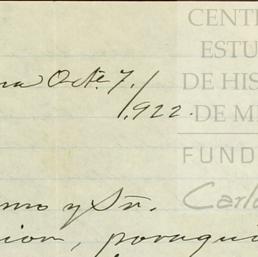 CENT
ESTU
DE HIS
DE M
FUND
Carl
na Oct. 7./
1922.
mo y Sr.
cion, poraqu